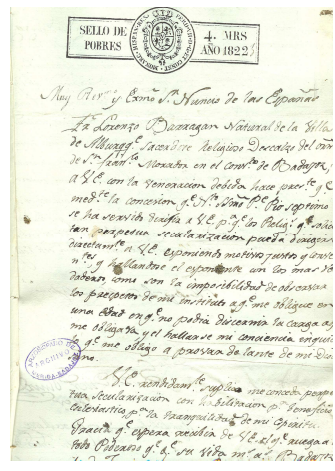 SELLO DE
POBRES
4. MRS
AÑO 1822
Muy Rev.º y Exmo Sr Nuncio de las Españas
Fr Lorenzo Barragan Natural de la Villa
de Alburqq.e sacerdote Religioso Descalzo del orn
de Sn Franco Morador en el Conv.to de Badajoz
a VE. con la veneracion debida hace pres.te q.e
med.te la concesion q.e N. Smo P.e Pio septimo
se ha servido a VE p.a q.e los Relig.s q.e
tan perpetua secularizacion puedan dirigirse
directam.te a VE. exponiendo motivos justos y
y hallandose el exponente en los mas
daderos, como son la imposibilidad de observar
los preceptos de mi instituto a q.e me oblique en
una edad en q.e no podia discernir la carga a q.e
me obligava y el hallarse mi conciencia
q.e me obliga a
no.
VE. rendidam.te suplica me conceda perpe
tua secularizacion con habilitacion p.a beneficio
Eclesiastico p.a la tranquilidad de mi espiritu
Gracia q.e espera recibir de VE. el q.e ruega a
Todo Poderoso q.e su vida m.s a.s Badajoz
ARCHIVO